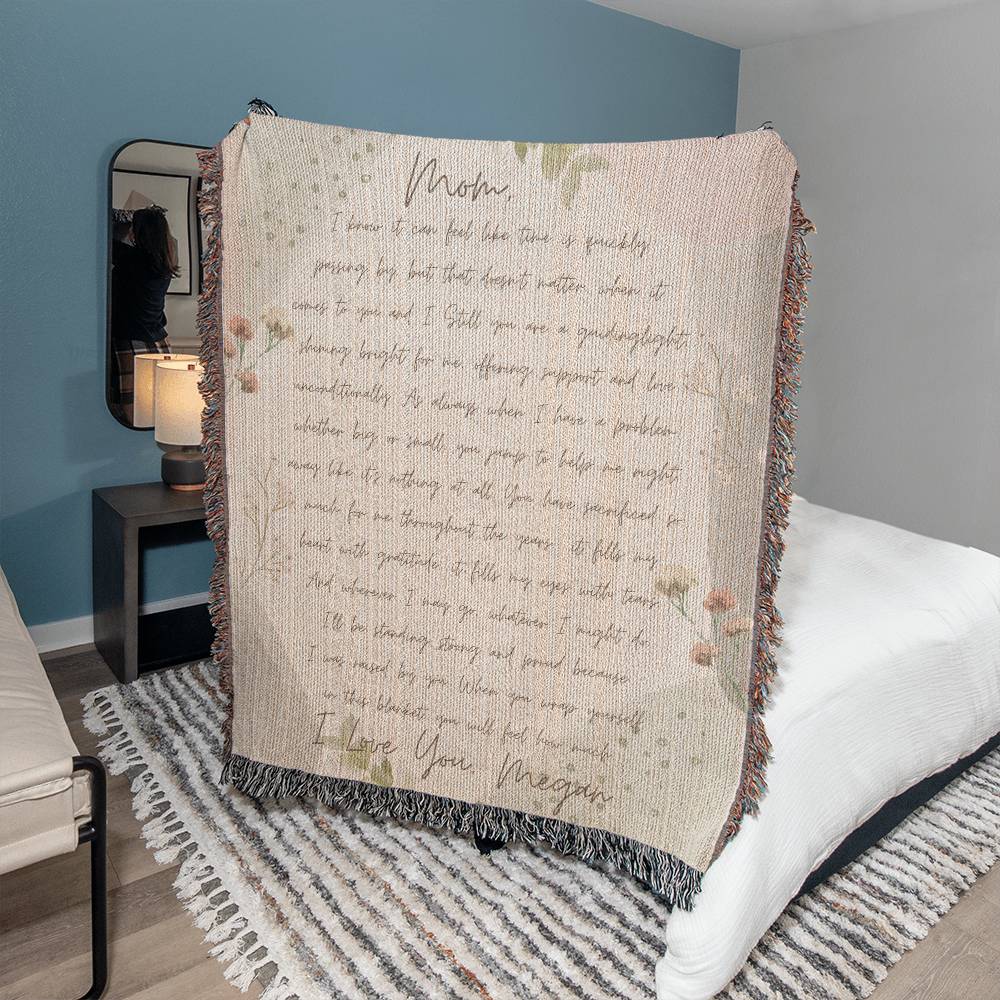 Mom,
I know it can feel like time is quickly
passing by, but that doesn't matter, when it
comes to you and I. Still you are a guidinglight,
shining bright for me, offering support and love,
unconditionally. As always when I have a problem,
whether big or small, you jump to help me right
away like it's nothing at all. You have sacrificed so
much for me throughout the years, it fills my
heart with gratitude, it fills my eyes with tears.
And wherever I may go, whatever I might do,
I'll be standing strong and proud because
I was raised by you. When you wrap yourself
in this blanket you will feel how much
I Love You. Megan